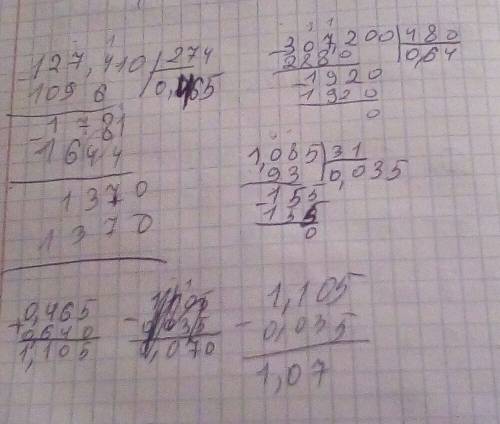 - 127,410 | 274
109 6 | 0,465
- 1781
1644
1370
1370
- 307,200 | 480
2880 | 0,64
- 1920
1920
0
1,085 | 31
93 | 0,035
- 155
155
0
+ 0,465
0,640
1,105
- 1,105
0,035
1,07